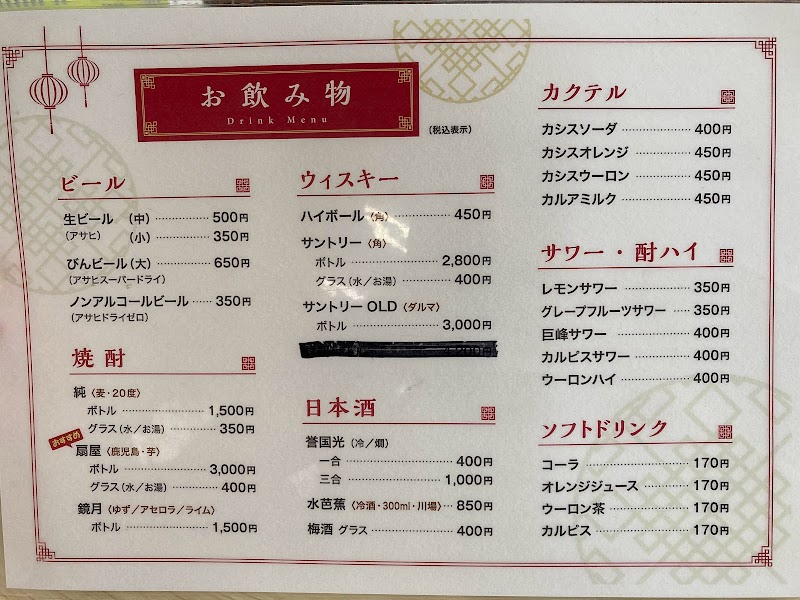 お飲み物
Drink Menu
(税込表示)
ビール
生ビール (中) 500円
(アサヒ) (小) 350円
びんビール(大) 650円
(アサヒスーパードライ)
ノンアルコールビール 350円
(アサヒドライゼロ)
焼酎
純〈麦・20度〉
ボトル 1,500円
グラス(水/お湯) 350円
おすすめ
扇屋〈鹿児島・芋〉
ボトル 3,000円
グラス(水/お湯) 400円
鏡月〈ゆず/アセロラ/ライム〉
ボトル 1,500円
ウィスキー
ハイボール〈角〉 450円
サントリー〈角〉
ボトル 2,800円
グラス(水/お湯) 400円
サントリー OLD〈ダルマ〉
ボトル 3,000円
日本酒
誉国光〈冷/燗〉
一合 400円
三合 1,000円
水芭蕉〈冷酒・300ml・川場〉 850円
梅酒 グラス 400円
カクテル
カシスソーダ 400円
カシスオレンジ 450円
カシスウーロン 450円
カルアミルク 450円
サワー・酎ハイ
レモンサワー 350円
グレープフルーツサワー 350円
巨峰サワー 400円
カルピスサワー 400円
ウーロンハイ 400円
ソフトドリンク
コーラ 170円
オレンジジュース 170円
ウーロン茶 170円
カルピス 170円